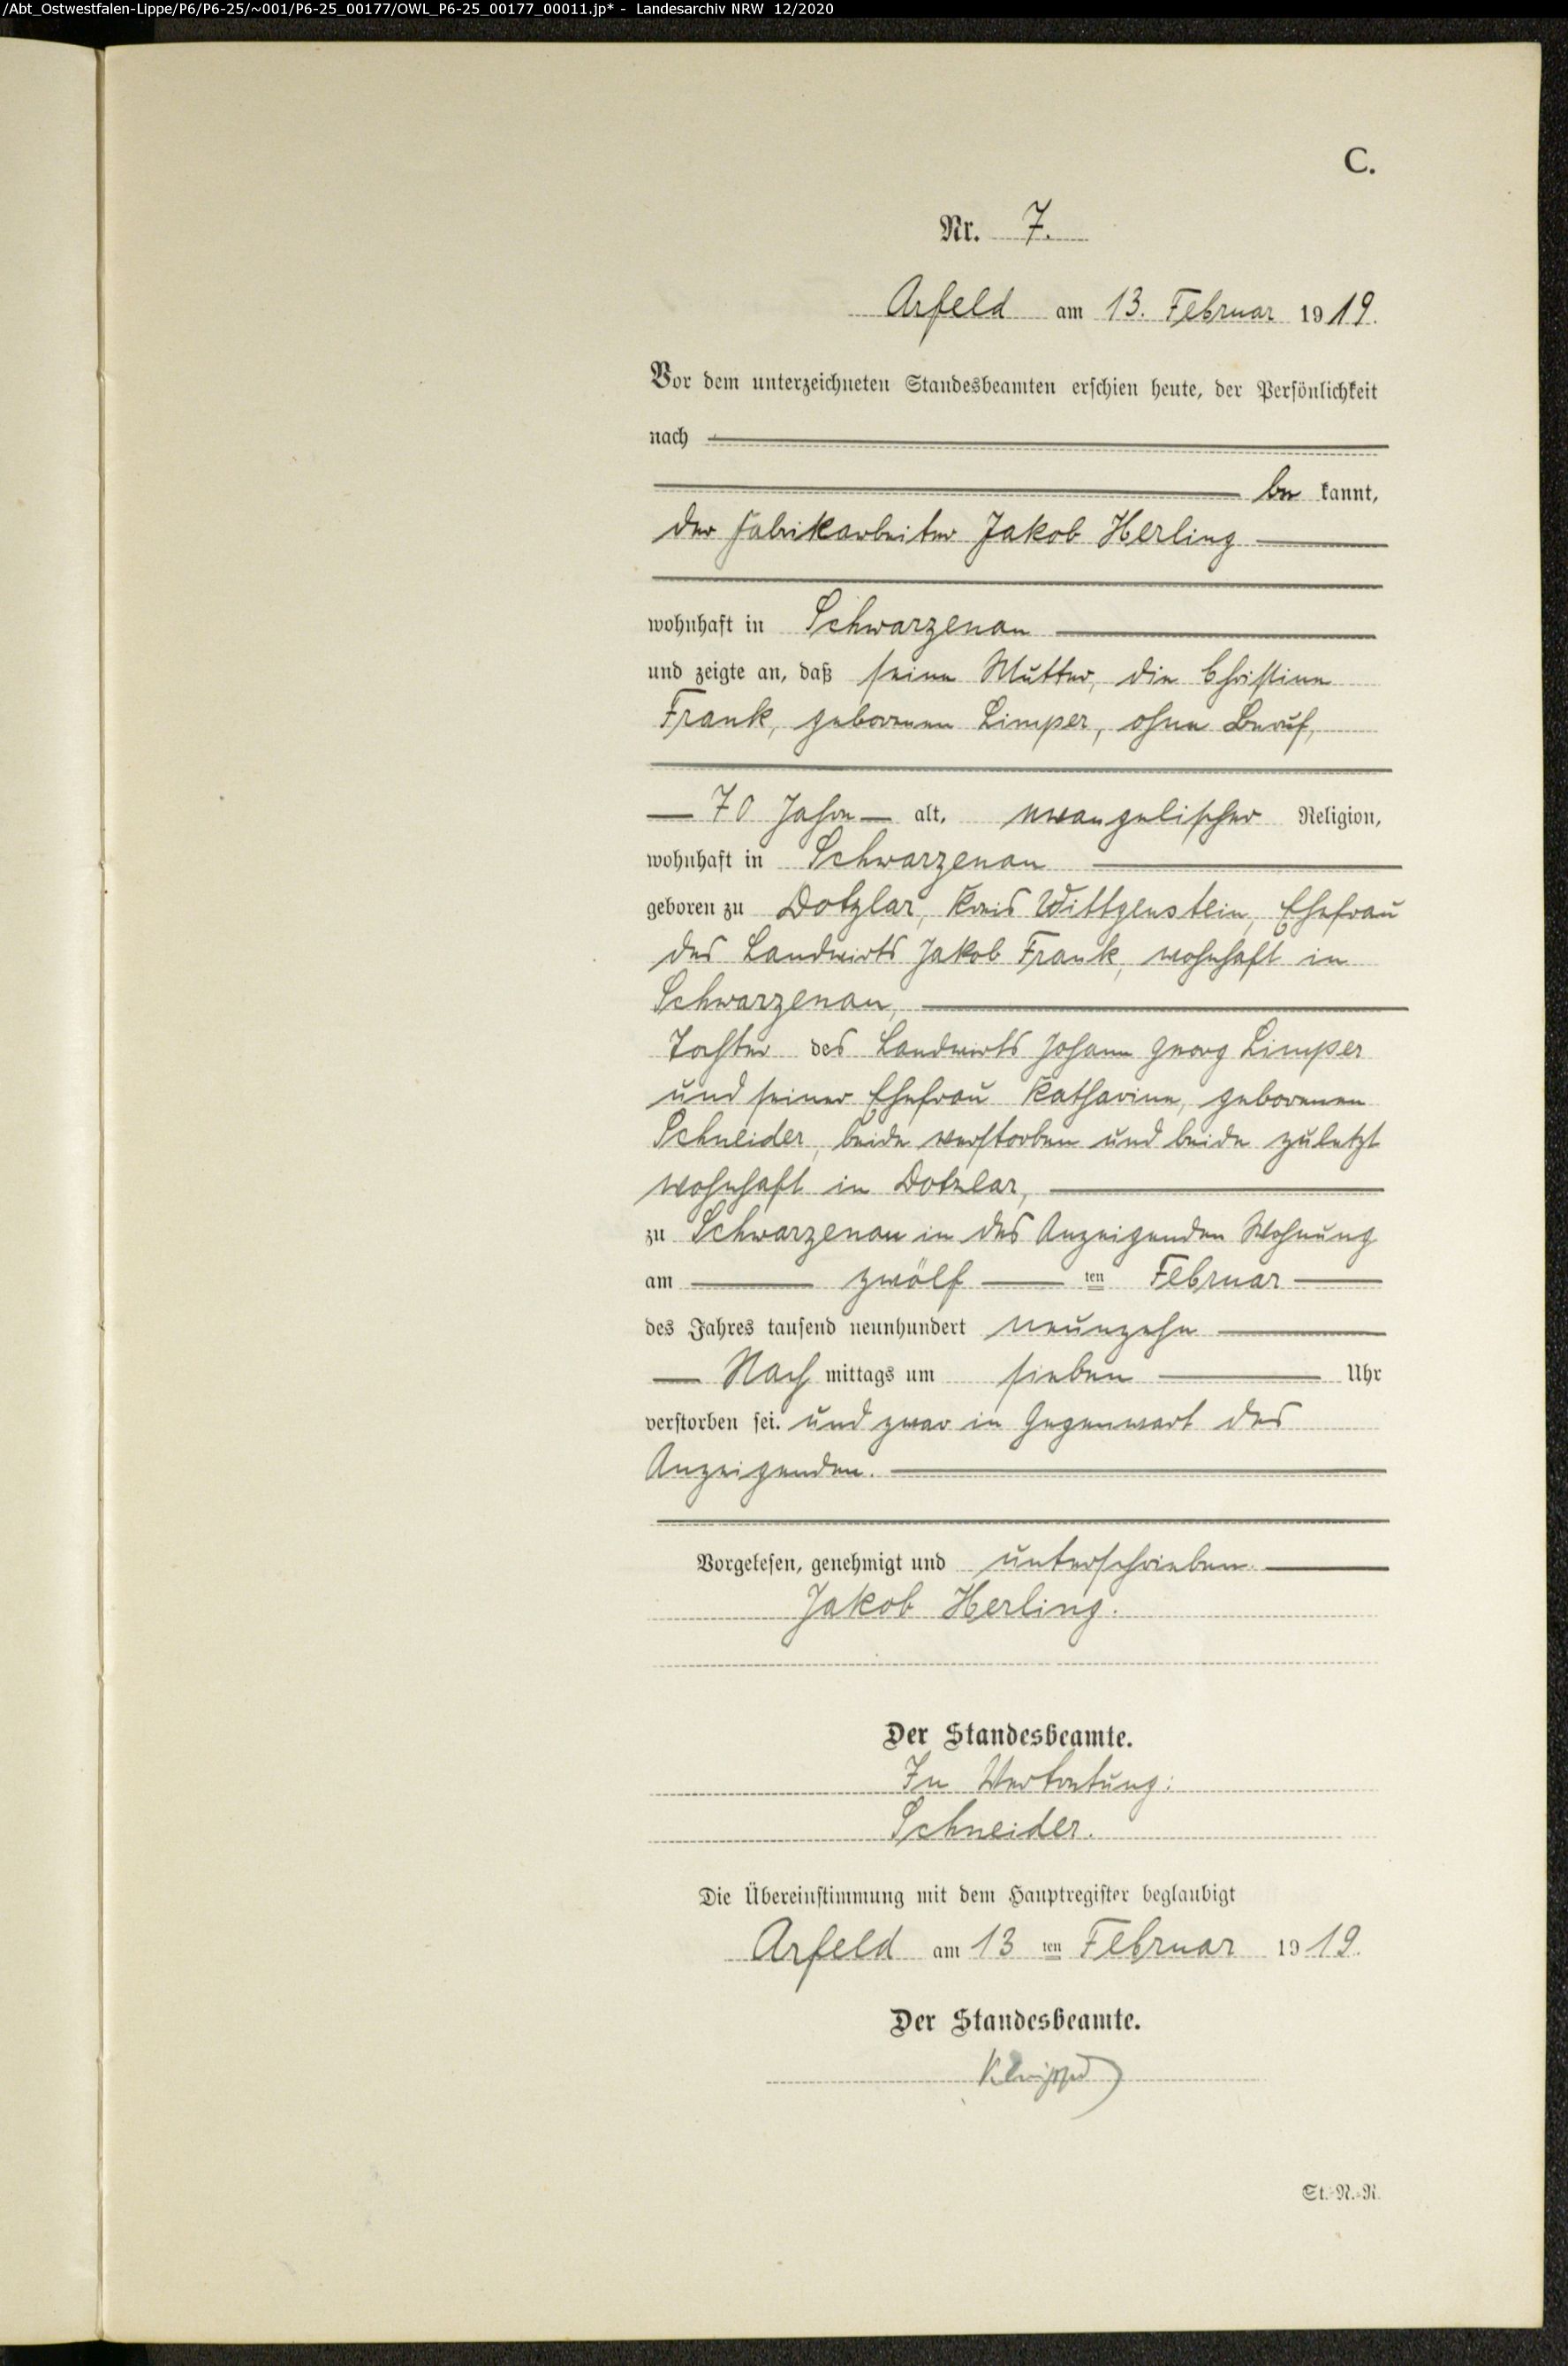 /Abt_Ostwestfalen-Lippe/P6/P6-25/~001/P6-25_00177/OWL_P6-25_00177_00011.jp* - Landesarchiv NRW 12/2020
C.
Nr. 7.
Arfeld am 13. Februar 1919.
Vor dem unterzeichneten Standesbeamten erschien heute, der Persönlichkeit
nach
be kannt,
der Fabrikarbeiter Jakob Herling
wohnhaft in Schwarzenau
und zeigte an, daß seine Mutter, die Christine
Frank, geborenen Limper, ohne Beruf,
70 Jahre alt, evangelischer Religion,
wohnhaft in Schwarzenau
geboren zu Dotzlar, Kreis Wittgenstein, Ehefrau
des Landwirts Jakob Frank, wohnhaft in
Schwarzenau,
Tochter des Landwirts Johann Georg Limper
und seiner Ehefrau Katharine, geborenen
Schneider, beide verstorben und beide zuletzt
wohnhaft in Dotzlar,
zu Schwarzenau in des Anzeigenden Wohnung
am zwölf ten Februar
des Jahres tausend neunhundert neunzehn
Nach mittags um sieben Uhr
verstorben sei. und zwar in Gegenwart des
Anzeigenden.
Vorgelesen, genehmigt und unterschrieben.
Jakob Herling.
Der Standesbeamte.
In Vertretung:
Schneider.
Die Übereinstimmung mit dem Hauptregister beglaubigt
Arfeld am 13 ten Februar 1919.
Der Standesbeamte.
St.-R.-R.